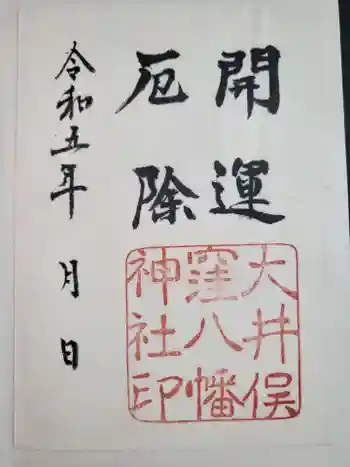 開運
厄除
大井俣
窪八幡
神社印
令和五年 月 日